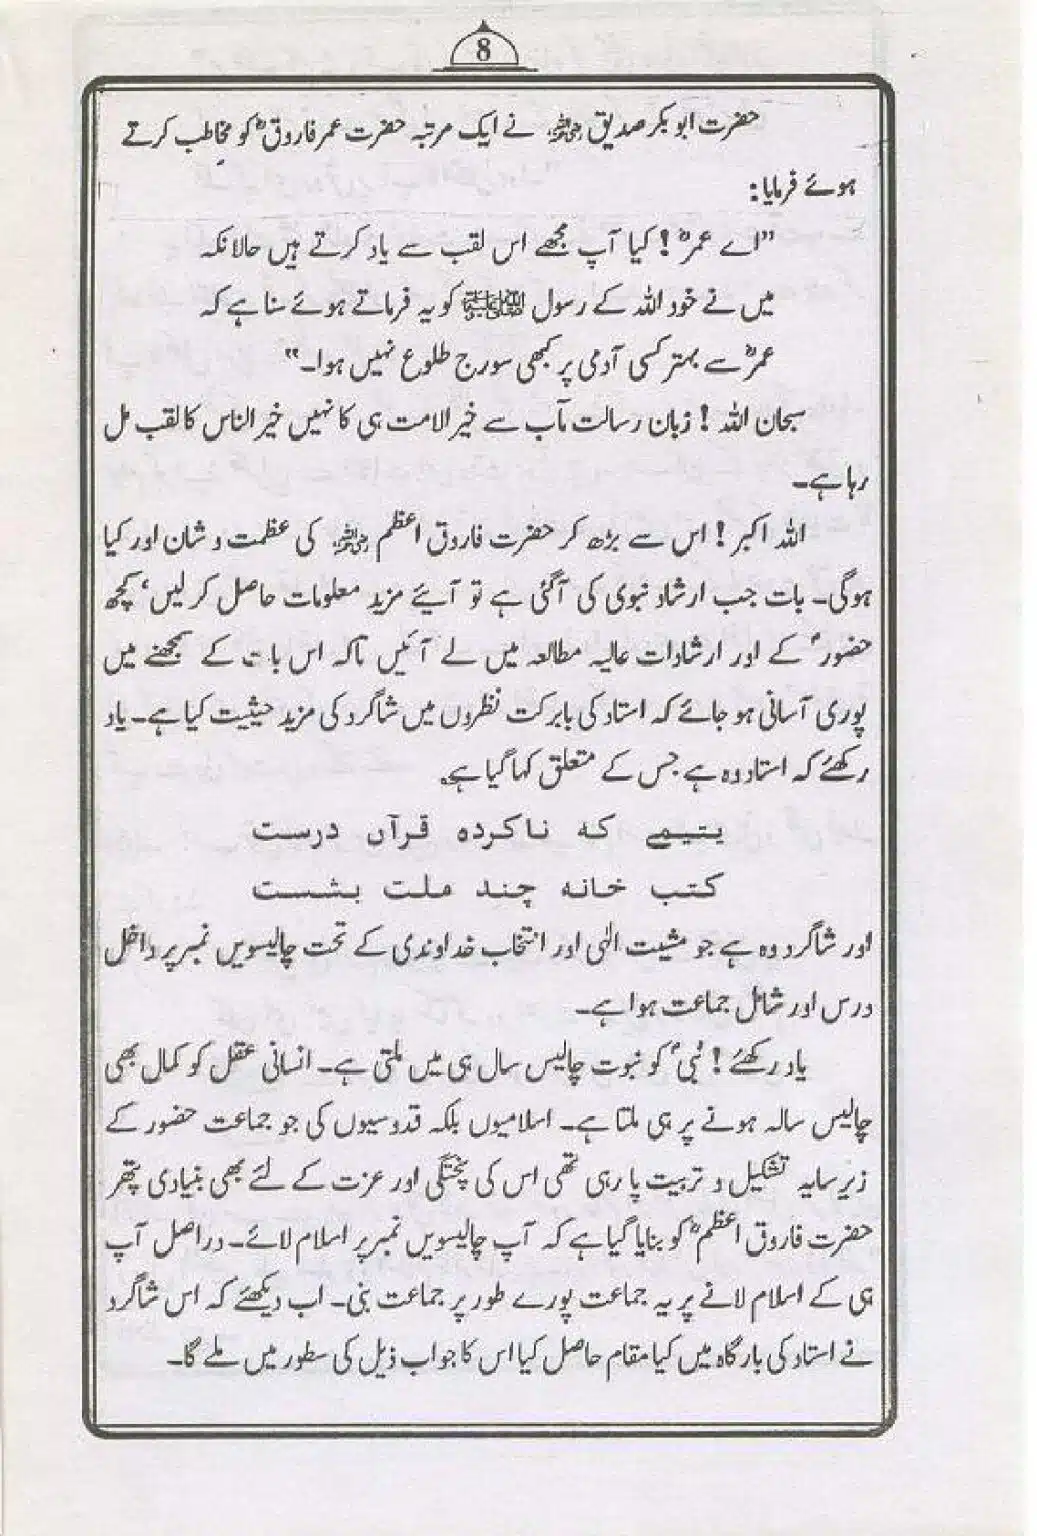 8
حضرت ابو بکر صدیق رضی اللہ عنہ نے ایک مرتبہ حضرت عمر فاروقؓ کو مخاطب کرتے
ہوئے فرمایا:
”اے عمرؓ! کیا آپ مجھے اس لقب سے یاد کرتے ہیں حالانکہ
میں نے خود اللہ کے رسول صلی اللہ علیہ وسلم کو یہ فرماتے ہوئے سنا ہے کہ
عمرؓ سے بہتر کسی آدمی پر کبھی سورج طلوع نہیں ہوا۔“
سبحان اللہ! زبان رسالت مآب سے خیر الامت ہی کا نہیں خیر الناس کا لقب مل
رہا ہے۔
اللہ اکبر! اس سے بڑھ کر حضرت فاروق اعظم رضی اللہ عنہ کی عظمت و شان اور کیا
ہوگی۔ بات جب ارشاد نبوی کی آگئی ہے تو آیئے مزید معلومات حاصل کر لیں، کچھ
حضورؐ کے اور ارشادات عالیہ مطالعہ میں لے آئیں تاکہ اس بات کے سمجھنے میں
پوری آسانی ہو جائے کہ استاد کی بابرکت نظروں میں شاگرد کی مزید حیثیت کیا ہے۔ یاد
رکھئے کہ استاد وہ ہے جس کے متعلق کہا گیا ہے۔
یتیمے کہ ناکردہ قرآں درست
کتب خانہ چند ملت بشست
اور شاگرد وہ ہے جو مشیت الٰہی اور انتخاب خداوندی کے تحت چالیسویں نمبر پر داخل
درس اور شامل جماعت ہوا ہے۔
یاد رکھئے! نبیؐ کو نبوت چالیس سال ہی میں ملتی ہے۔ انسانی عقل کو کمال بھی
چالیس سالہ ہونے پر ہی ملتا ہے۔ اسلامیوں بلکہ قدوسیوں کی جو جماعت حضور کے
زیر سایہ تشکیل و تربیت پا رہی تھی اس کی پختگی اور عزت کے لئے بھی بنیادی پتھر
حضرت فاروق اعظمؓ کو بنایا گیا ہے کہ آپ چالیسویں نمبر پر اسلام لائے۔ دراصل آپ
ہی کے اسلام لانے پر یہ جماعت پورے طور پر جماعت بنی۔ اب دیکھئے کہ اس شاگرد
نے استاد کی بارگاہ میں کیا مقام حاصل کیا اس کا جواب ذیل کی سطور میں ملے گا۔